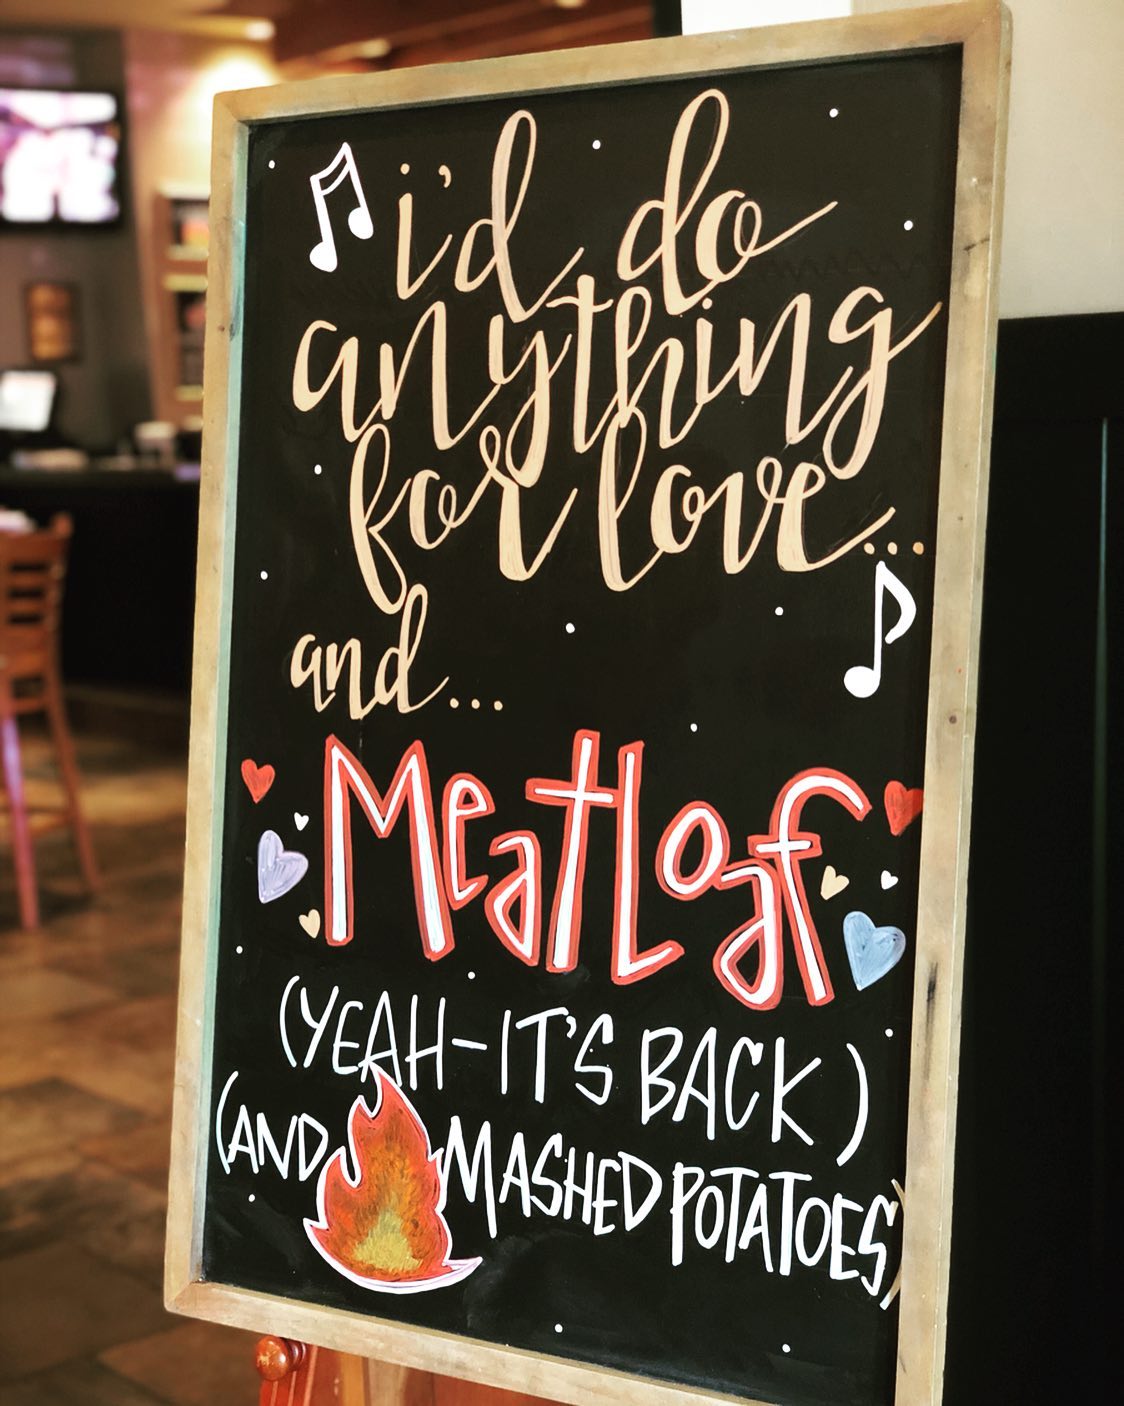 i'd do
anything
for love...
and...
Meatloaf
(YEAH-IT'S BACK)
(AND MASHED POTATOES)